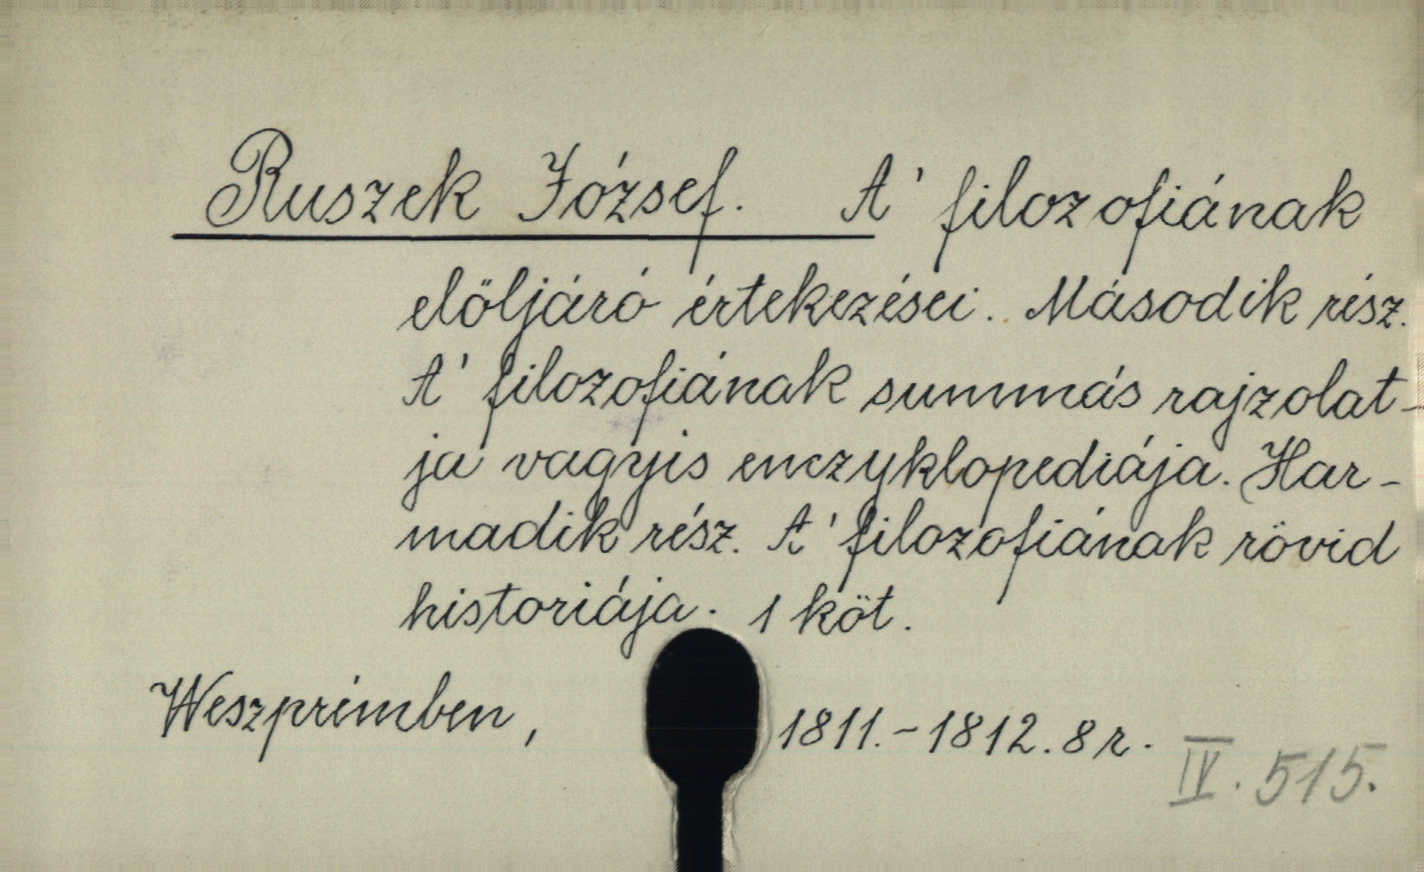 Ruszek József. A' filozofiának
elöljáró értekezései. Második rész.
A' filozofiának summás rajzolat-
ja vagyis enczyklopediája. Har-
madik rész. A' filozofiának rövid
historiája. 1 köt.
Weszprémben, 1811.-1812. 8 r.
IV. 515.